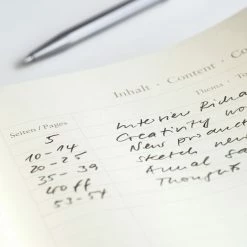 Inhalt · Content · Co
Thema · T
Seiten / Pages
5 Interview Richa
10-14 Creativity wo
20-25 New product
35-39 sketch new
40 ff Annual sa
53-54 Thoughts